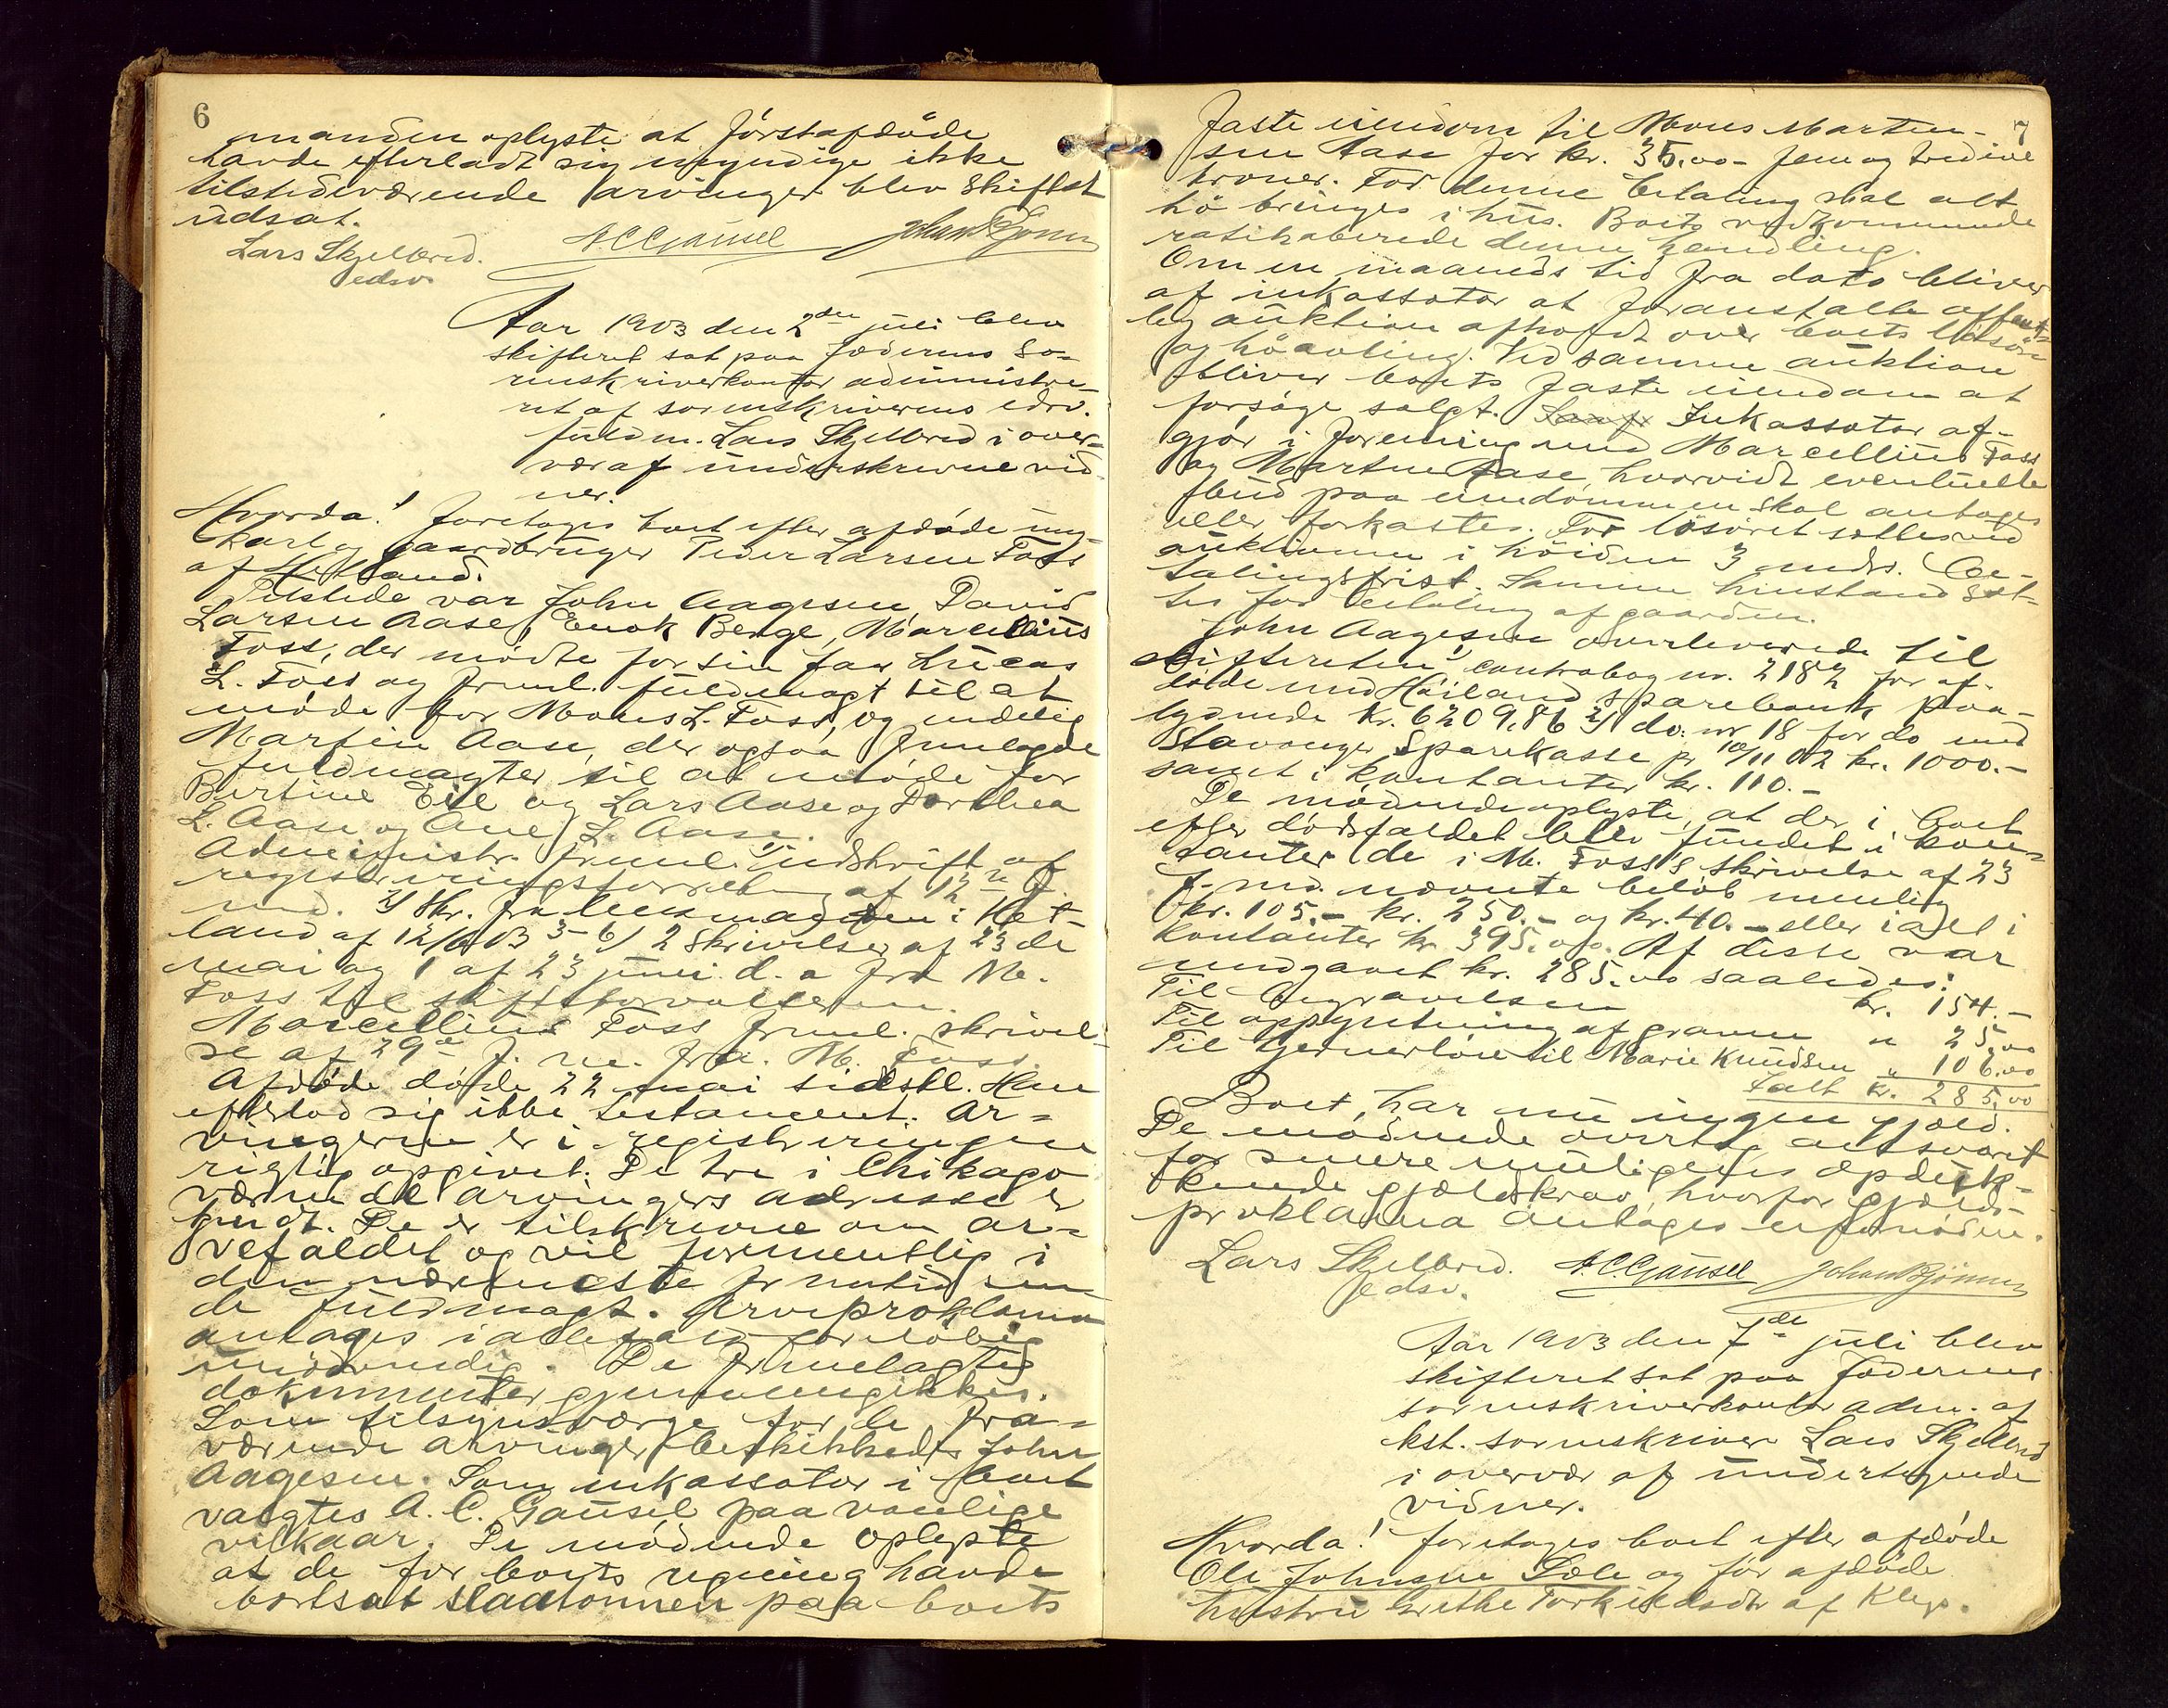 6
manden oplyste at førstafdøde
havde efterladt sig umyndige ikke
tilstedeværende arvinger blev skiftet
udsat.
Lars Skjelbred. A C Gausel Johan Bjønnes
edsv.
Aar 1903 den 2den juli blev
skifteret sat paa Jæderens so-
renskriverkontor administre-
ret af sorenskriverens edsv.
fuldm. Lars Skjelbred i over-
vær af underskrevne vid-
ner.
Hvorda! foretoges boet efter afdøde ung-
karl og gaardbruger Peder Larsen Foss
af Hetland.
Tilstede var John Aagesen, David
Larsen Aase, Enok Berge, Marcellius
Foss, der mødte for sin far Lucas
L. Foss og freml. fuldmagt til at
møde for Mons L. Foss, og endelig
Martin Aase, der ogsaa fremlagde
fuldmagter til at møde for
Bertine Eie og Lars Aase og Dorthea
L. Aase og Ane L. Aase.
Administr. freml. 1) Udskrift af
registreringsforretning af 12te f.
md. 2) Skr. fra lensmanden i Het-
land af 12/6 03 3-6) 2 skrivelser af 23de
mai og 1 af 23 juni d. a fra M.
Foss til skifteforvalteren.
Marcellius Foss freml. skrivel-
se af 29de f. m. fra M. Foss.
Afdøde døde 22 mai sidstl. Han
efterlod sig ikke testament. Ar-
vingerne er i registreringen
rigtig opgivet. De tre i Chikago
værende arvingers adresse er
kjendt. De er tilskrevne om ar-
vefaldet og vil formentlig i
den nærmeste fremtid sen-
de fuldmagt. Arveproklama
antages i alle fald foreløbig
unødvendig. De fremlagte
dokumenter gjennemgikkes.
Som tilsynsværge for de fra-
værende arvinger beskikkedes John
Aagesen. Som inkassator i boet
valgtes A. C. Gausel paa vanlige
vilkaar. De mødende oplyste
at de for boets regning havde
bortsat slaatonnen paa boets
7
faste eiendom til Mons Marten-
sen Aase for kr. 35.00 - fem og tredive
kroner. For denne betaling skal alt
hø bringes i hus. Boets vedkommende
ratihaberede denne handling.
Om en maaneds tid fra dato bliver
af inkassator at foranstalte offent-
lig auktion afholdt over boets løsøre
og høavling. Ved samme auktion
bliver boets faste eiendom at
forsøge solgt. Inkassator af-
gjør i forening med Marcellius Foss
og Martin Aase, hvorvidt eventuelle
bud paa eiendommen skal antages
eller forkastes. For løsøret sættes ved
auktionen i høiden 3 mdrs. be-
talingsfrist. Samme henstand sæt-
tes for betaling af gaarden.
John Aagesen overleverede til
skifteretten 1) contrabog nr. 2182 for af-
døde med Høiland sparebank paa-
lydende kr. 6209,86 2) do. nr 18 for do med
Stavanger Sparekasse pr 10/11 02 kr. 1000.-
samt i kontanter kr. 110.-
De mødende oplyste, at der i boet
efter dødsfaldet blev fundet i kon-
tanter de i M. Foss's skrivelse af 23
f. md. nævnte beløb nemlig
kr. 105.- kr. 250.- og kr. 40.- eller ialt i
kontanter kr 395.00. Af disse var
medgaaet kr. 285.00 saaledes:
Til begravelsen kr. 154.-
Til oppyntning af graven " 25,00
Til tjenerløn til Marie Knudsen " 106.00
Ialt kr. 285,00
Boet har nu ingen gjæld.
De mødende overtog ansvaret
for senere muligens opduk-
kende gjældskrav, hvorfor gjælds-
proklama antoges ufornøden.
Lars Skjelbred. A. C. Gausel Johan Bjønnes
edsv.
Aar 1903 den 7de juli blev
skifteret sat paa Jæderens
sorenskriverkontor adm. af
kst. sorenskriver Lars Skjelbred
i overvær af undertegnede
vidner.
Hvorda! foretoges boet efter afdøde
Ole Johnsen Sele og før afdøde
hustru Grethe Torkildsdtr af Klep.